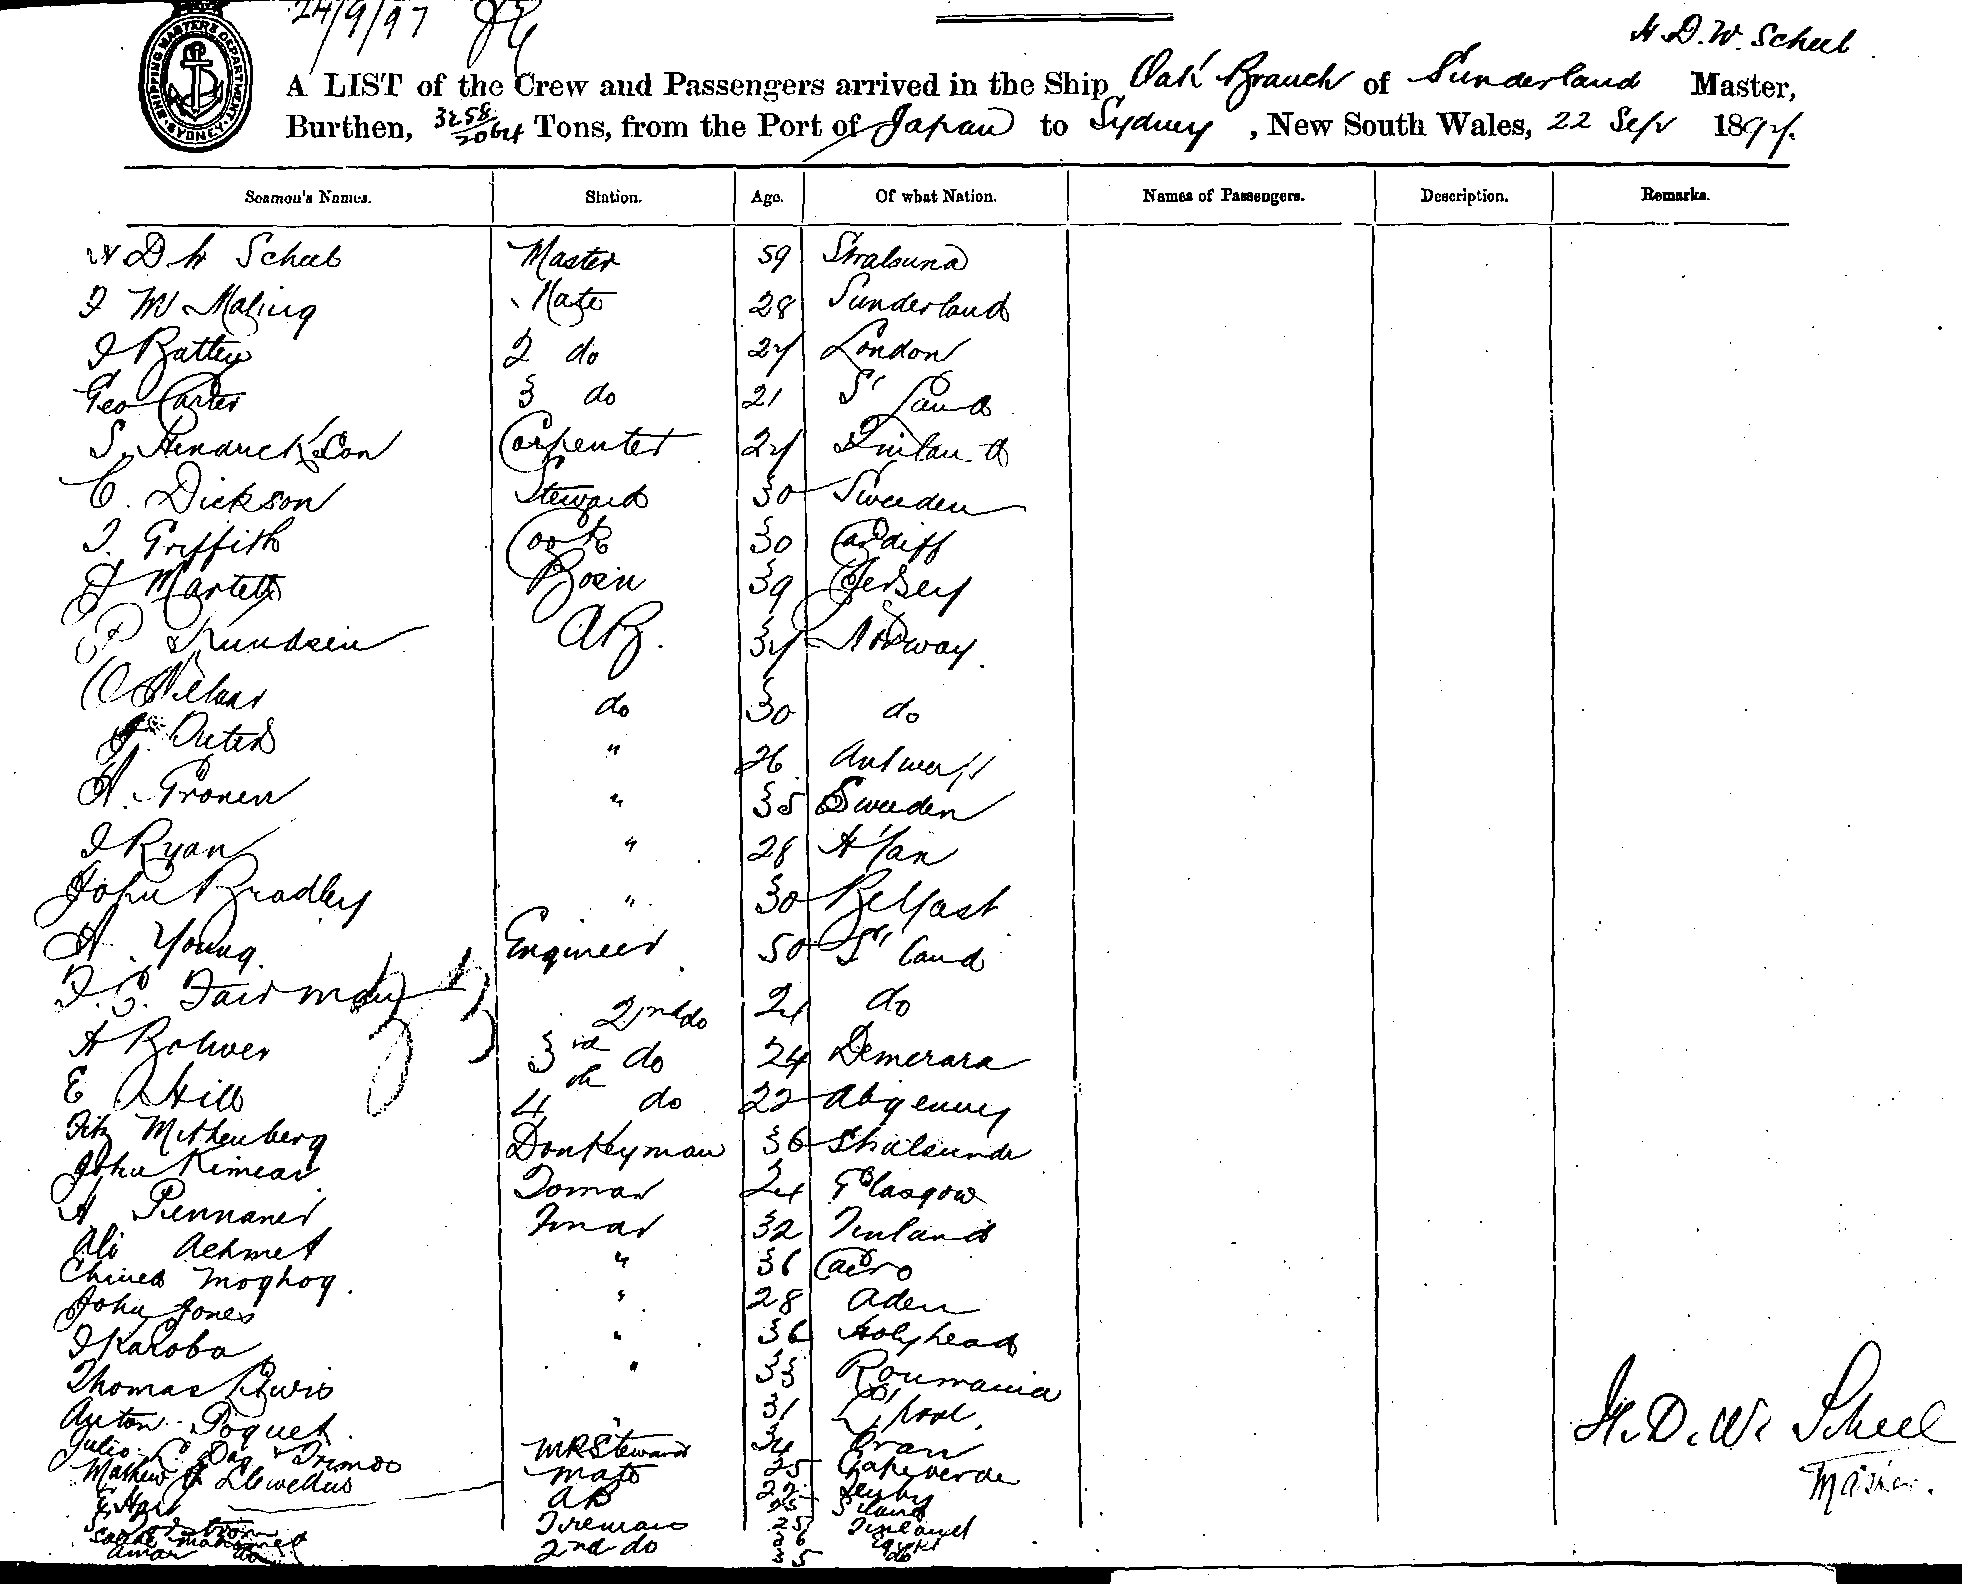 24/9/97
H. D. W. Scheel
SHIPPING MASTERS DEPARTMENT SYDNEY
A LIST of the Crew and Passengers arrived in the Ship Oak Branch of Sunderland Master,
Burthen, 3258/2064 Tons, from the Port of Japan to Sydney, New South Wales, 22 Sepr 1897.
Seamen's Names. Station. Age. Of what Nation. Names of Passengers. Description. Remarks.
H D W Scheel Master 59 Stralsund
J W Maling Mate 28 Sunderland
J Battey 2 do 27 London
Geo Carter 3 do 21 S' Land
S. Hendrickson Carpenter 27 Finland
C. Dickson Steward 30 Sweden
J. Griffith Cook 30 Cardiff
J Martell Bosn 39 Jersey
P Knudsen AB. 37 Norway.
C Nielsen do 30 do
J. Outers " 26 Antwerp
A. Gronen " 35 Sweden
J Ryan " 28
John Bradley " 30 Belfast
A Young. Engineer 50 S' land
J. G. Fairman 2nd do 21 do
A Boliver 3rd do 24 Demerara
E A Hill 4th do 22 Abgenney
Fitz Mithenberg Donkeyman 36 Stralsund
John Kinnear 24 Glasgow
A Pennaner Fman 32 Finland
Ali Achmet " 36 Cairo
Chined Moghog. " 28 Aden
John Jones " 36 Holyhead
J Karoba " 33 Roumania
Thomas Lewis 31 L'pool.
Anton Poquet 34 Oran
Julio MRSteward 25 Capeverde
Mathew Llewellus mate 22
J Hart AB 25 S'land
Fireman 25 Finland
Mahomed 2nd do 26
Amar do 35 do
H. D. W. Scheel
Master.